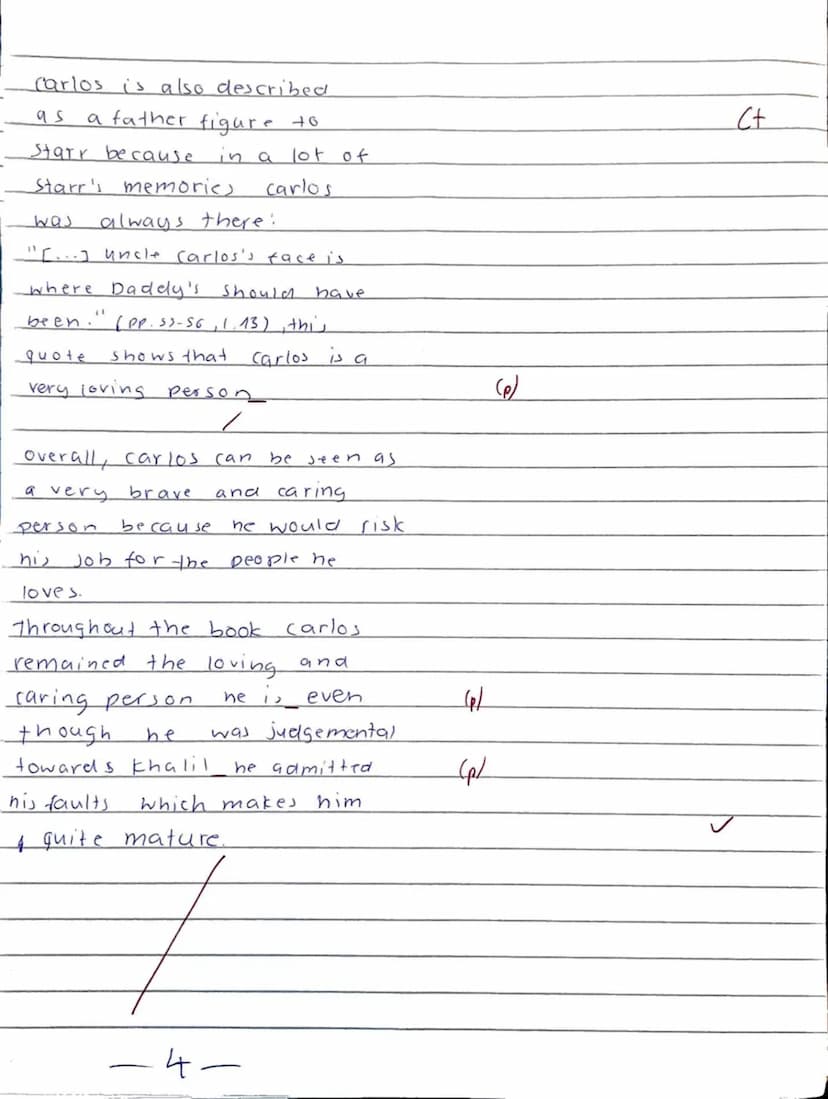 Carlos is also described
as a father figure to
Ct
Starr because in a lot of
Starr's memories Carlos
was always there:
"[...] Uncle Carlos's face is
where Daddy's should have
been." (pp. 55-56, l. 13), this
quote shows that Carlos is a
very loving person_ (p)
Overall, Carlos can be seen as
a very brave and caring
person because he would risk
his job for the people he
loves.
Throughout the book Carlos
remained the loving and
caring person he is_ even (p)
though he was judgemental
towards Khalil_ he admitted (p)
his faults which makes him
quite mature. ✓
— 4 —